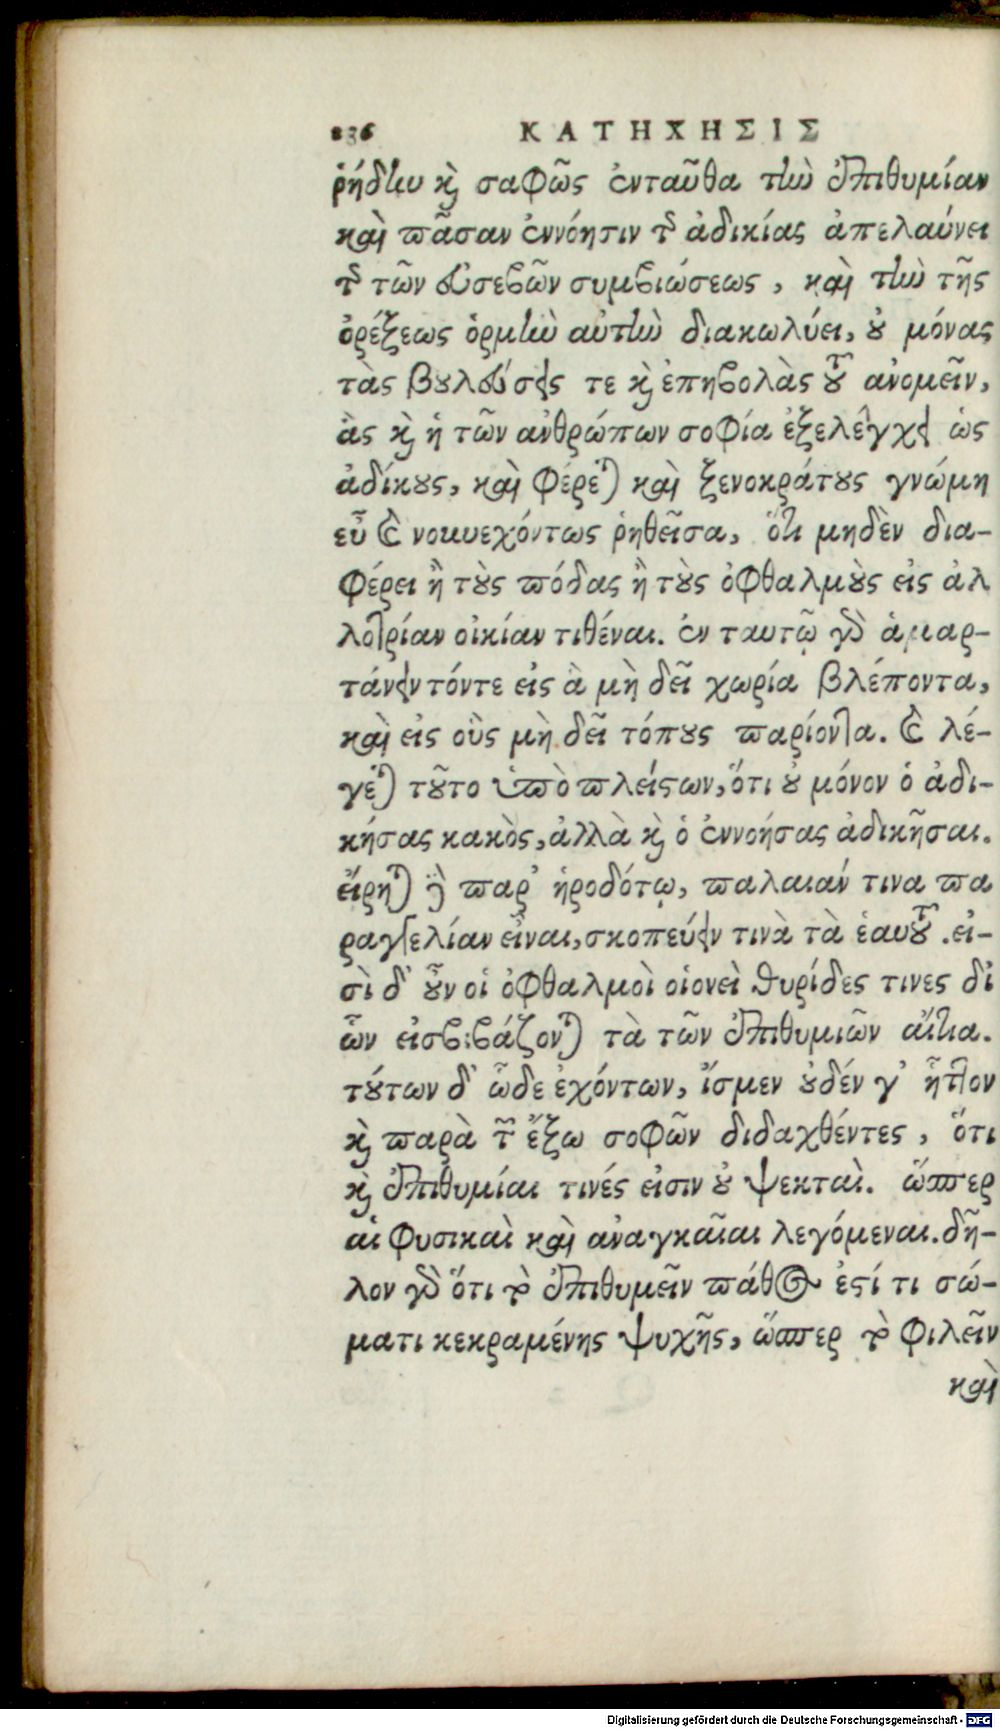 236 ΚΑΤΗΧΗΣΙΣ
ῥήδην κὶ σαφῶς ἐνταῦθα τὴν ἐπιθυμίαν
καὶ πᾶσαν ἐννόησιν τῆς ἀδικίας ἀπελαύνει
τῆς τῶν εὐσεβῶν συμβιώσεως, καὶ τὴν τῆς
ὀρέξεως ὁρμὴν αὐτὴν διακωλύει, οὐ μόνας
τὰς βουλεύσεις τε κὶ ἐπηβολὰς τοῦ ἀνομεῖν,
ἃς κὶ ἡ τῶν ἀνθρώπων σοφία ἐξελέγχει ὡς
ἀδίκους, καὶ φέρεται καὶ ξενοκράτους γνώμη
εὖ καὶ νουνεχόντως ῥηθεῖσα, ὅτι μηδὲν δια-
φέρει ἢ τοὺς πόδας ἢ τοὺς ὀφθαλμοὺς εἰς ἀλ
λοτρίαν οἰκίαν τιθέναι. ἐν ταυτῷ γὰρ ἁμαρ-
τάνειν τόντε εἰς ἃ μὴ δεῖ χωρία βλέποντα,
καὶ εἰς οὓς μὴ δεῖ τόπους παρίοντα. καὶ λέ-
γεται τοῦτο ὑπὸ πλείστων, ὅτι οὐ μόνον ὁ ἀδι-
κήσας κακὸς, ἀλλὰ κὶ ὁ ἐννοήσας ἀδικῆσαι.
εἴρηται παρ' ἡροδότῳ, παλαιάν τινα πα
ραγγελίαν εἶναι, σκοπεύειν τινὰ τὰ ἑαυτοῦ. εἰ-
σὶ δ' οὖν οἱ ὀφθαλμοὶ οἱονεὶ θυρίδες τινες δι'
ὧν εἰσβιβάζονται τὰ τῶν ἐπιθυμιῶν αἴτια.
τούτων δ' ὧδε ἐχόντων, ἴσμεν οὐδέν γ' ἧττον
κὶ παρὰ τῶν ἔξω σοφῶν διδαχθέντες, ὅτι
κὶ ἐπιθυμίαι τινές εἰσιν οὐ ψεκταὶ. ὥσπερ
αἱ φυσικαὶ καὶ ἀναγκαῖαι λεγόμεναι. δῆ-
λον γὰρ ὅτι τὸ ἐπιθυμεῖν πάθος ἐστί τι σώ-
ματι κεκραμένης ψυχῆς, ὥσπερ τὸ φιλεῖν
καὶ
Digitalisierung gefördert durch die Deutsche Forschungsgemeinschaft - DFG